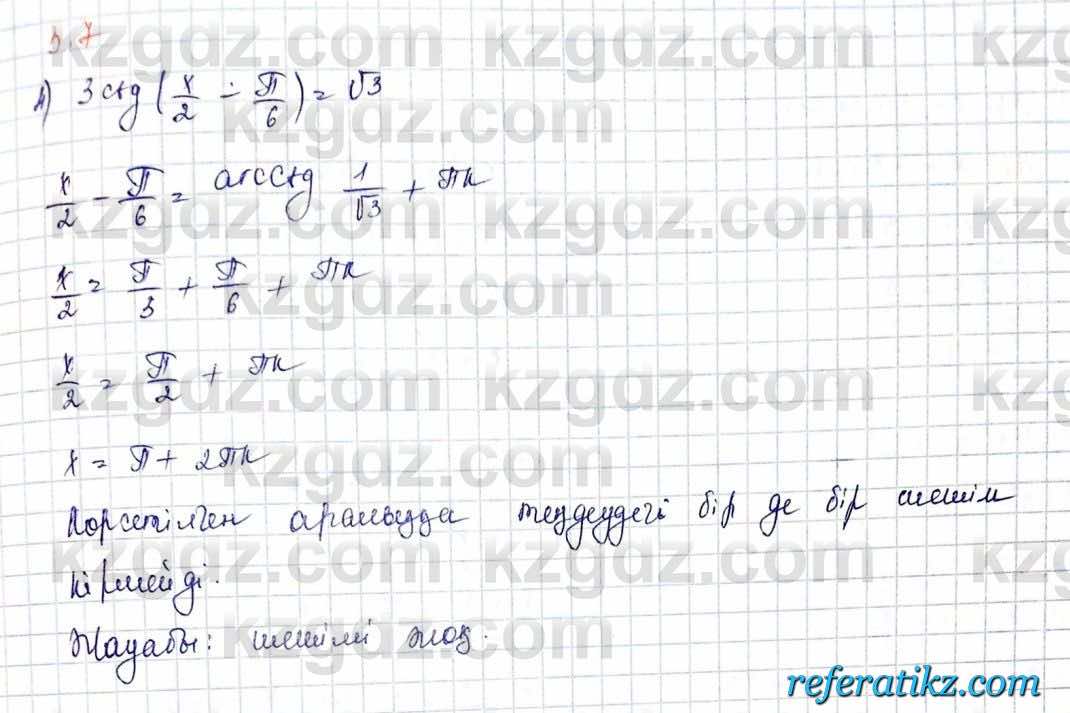 5.7
4) 3ctg(x/2 − π/6) = √3
x/2 − π/6 = arcctg 1/√3 + πк
x/2 = π/3 + π/6 + πк
x/2 = π/2 + πк
x = π + 2πк
Көрсетілген аралықта теңдеудегі бір де бір шешім
кірмейді.
Жауабы: шешімі жоқ.
kzgdz.com
referatikz.com